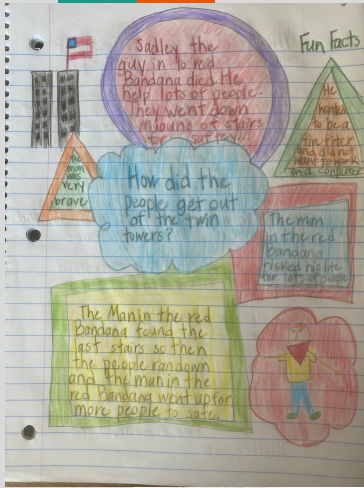 Sadley the
guy in to red
Bandana died. He
help lots of people.
They went down
of stairs
for
Fun Facts
He
wanted
to be a
and did not
want to work
on a computer
the
man
was
very
brave
How did the
people get out
of the twin
towers?
The man
in the red
Bandana
risked his life
for lots of people
The Man in the red
Bandana found the
last stairs so then
the people ran down
and the man in the
red Bandana went up for
more people to safe.